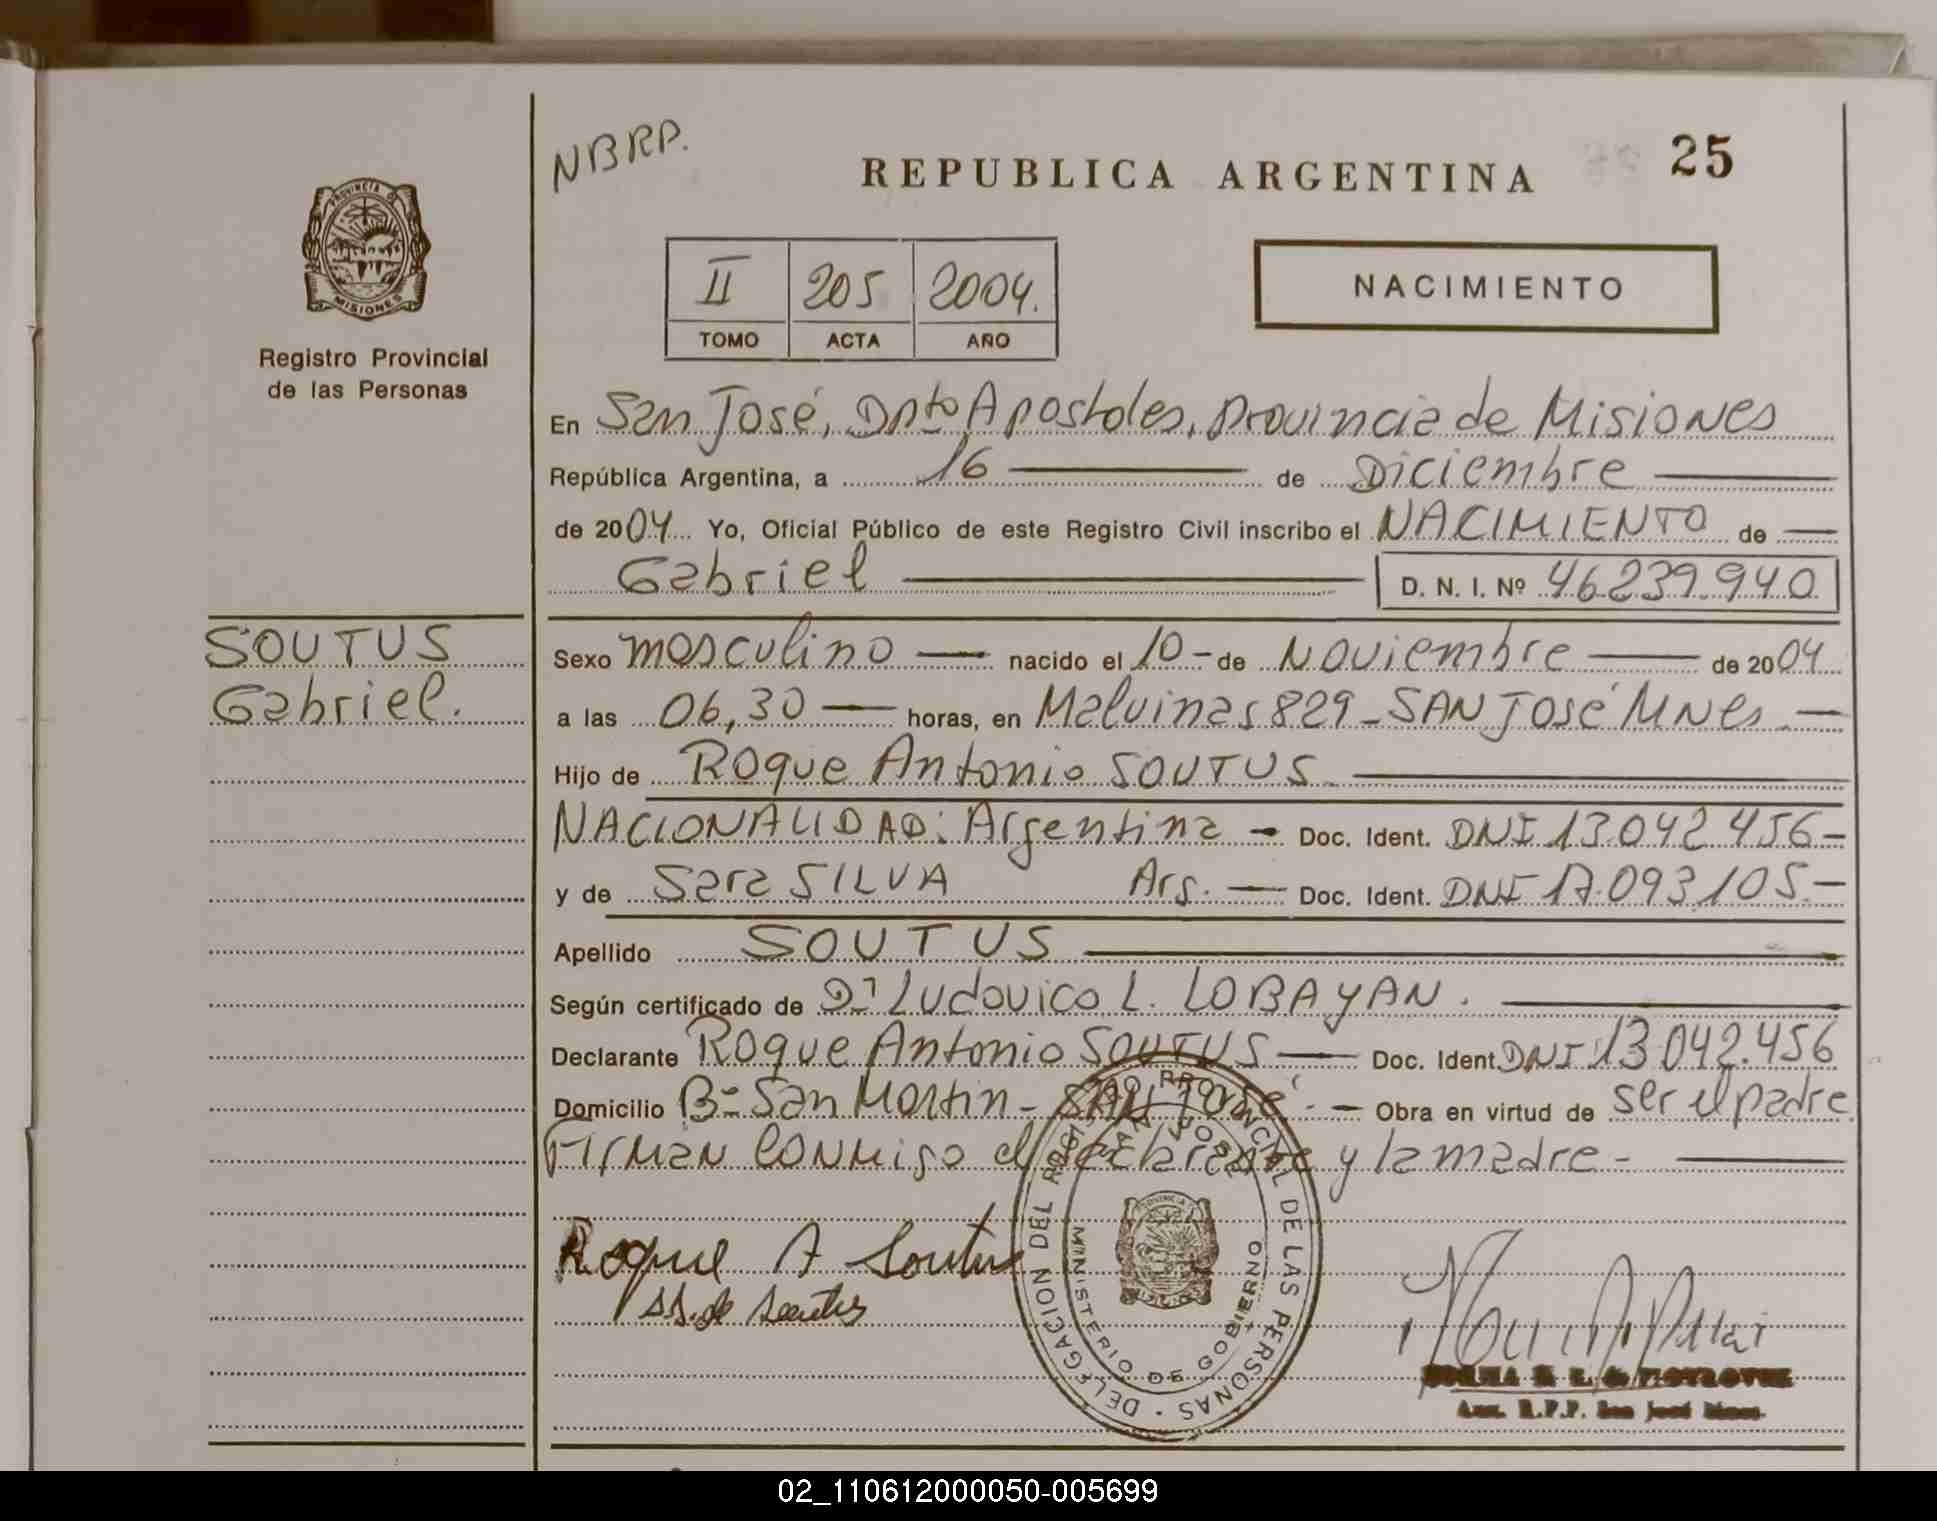 NBRP.
REPUBLICA ARGENTINA
25
PROVINCIA D MISIONES
Registro Provincial
de las Personas
II 205 2004.
TOMO ACTA AÑO
NACIMIENTO
En San José, Dpto Apostoles, Provincia de Misiones
República Argentina, a 16 de Diciembre
de 2004 Yo, Oficial Público de este Registro Civil inscribo el NACIMIENTO de
Gabriel D. N. I. Nº 46.239.940
SOUTUS
Gabriel.
Sexo masculino nacido el 10 - de Noviembre de 2004
a las 06,30 horas, en Malvinas 829 - SAN José Mnes. -
Hijo de Roque Antonio SOUTUS
NACIONALIDAD: Argentina - Doc. Ident. DNI 13.042.456 -
y de Sara SILVA Arg. - Doc. Ident. DNI 17.093.105 -
Apellido SOUTUS
Según certificado de Dr Ludovico L. LOBAYAN.
Declarante Roque Antonio SOUTUS Doc. Ident. DNI 13.042.456
Domicilio Bº San Martin - SAN José - Obra en virtud de ser el padre
Firman conmigo el declarante y la madre -
DELEGACION DEL REGISTRO PROVINCIAL DE LAS PERSONAS
SAN JOSE
MINISTERIO DE GOBIERNO
Roque A Soutus
S.S. de Soutus
Aux. R.P.P. San José Mnes.
02_110612000050-005699